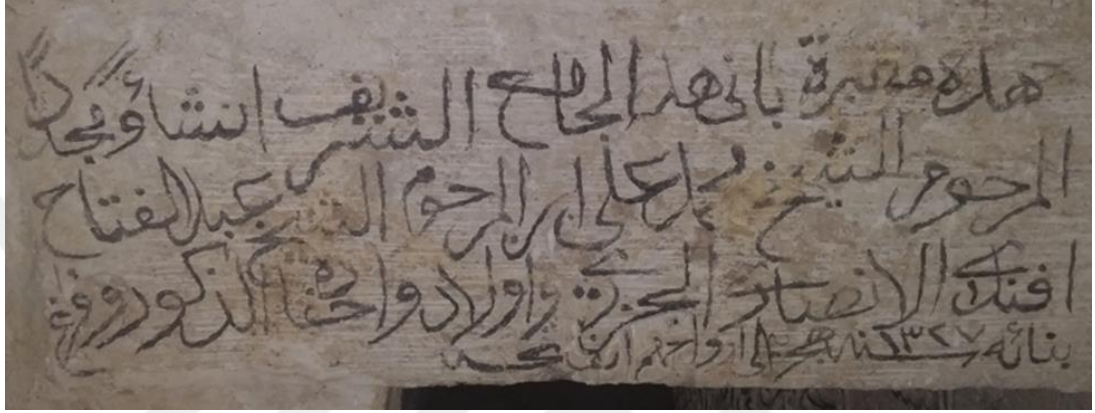 هذه مقبرة بانى هذا الجامع الشريف انشاؤ مجدداً
المرحوم الشيخ محمد على ابن المرحوم الشيخ عبد الفتاح
افندى الانصارى الخزرجى واولاده واحفاده الذكور وقع
بنائه سنة ١٣٢٧ هجرى